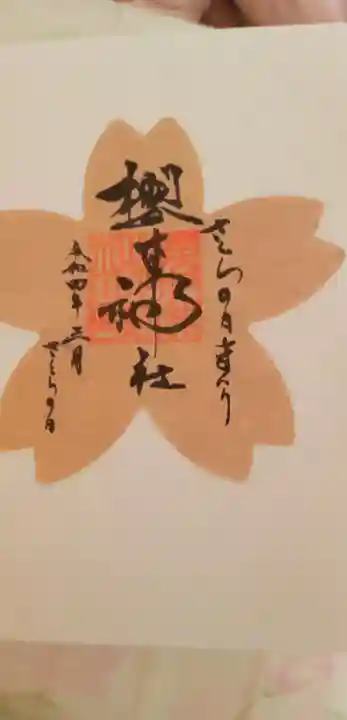 さくらの日
櫻木神社
令和四年三月
さくらの日